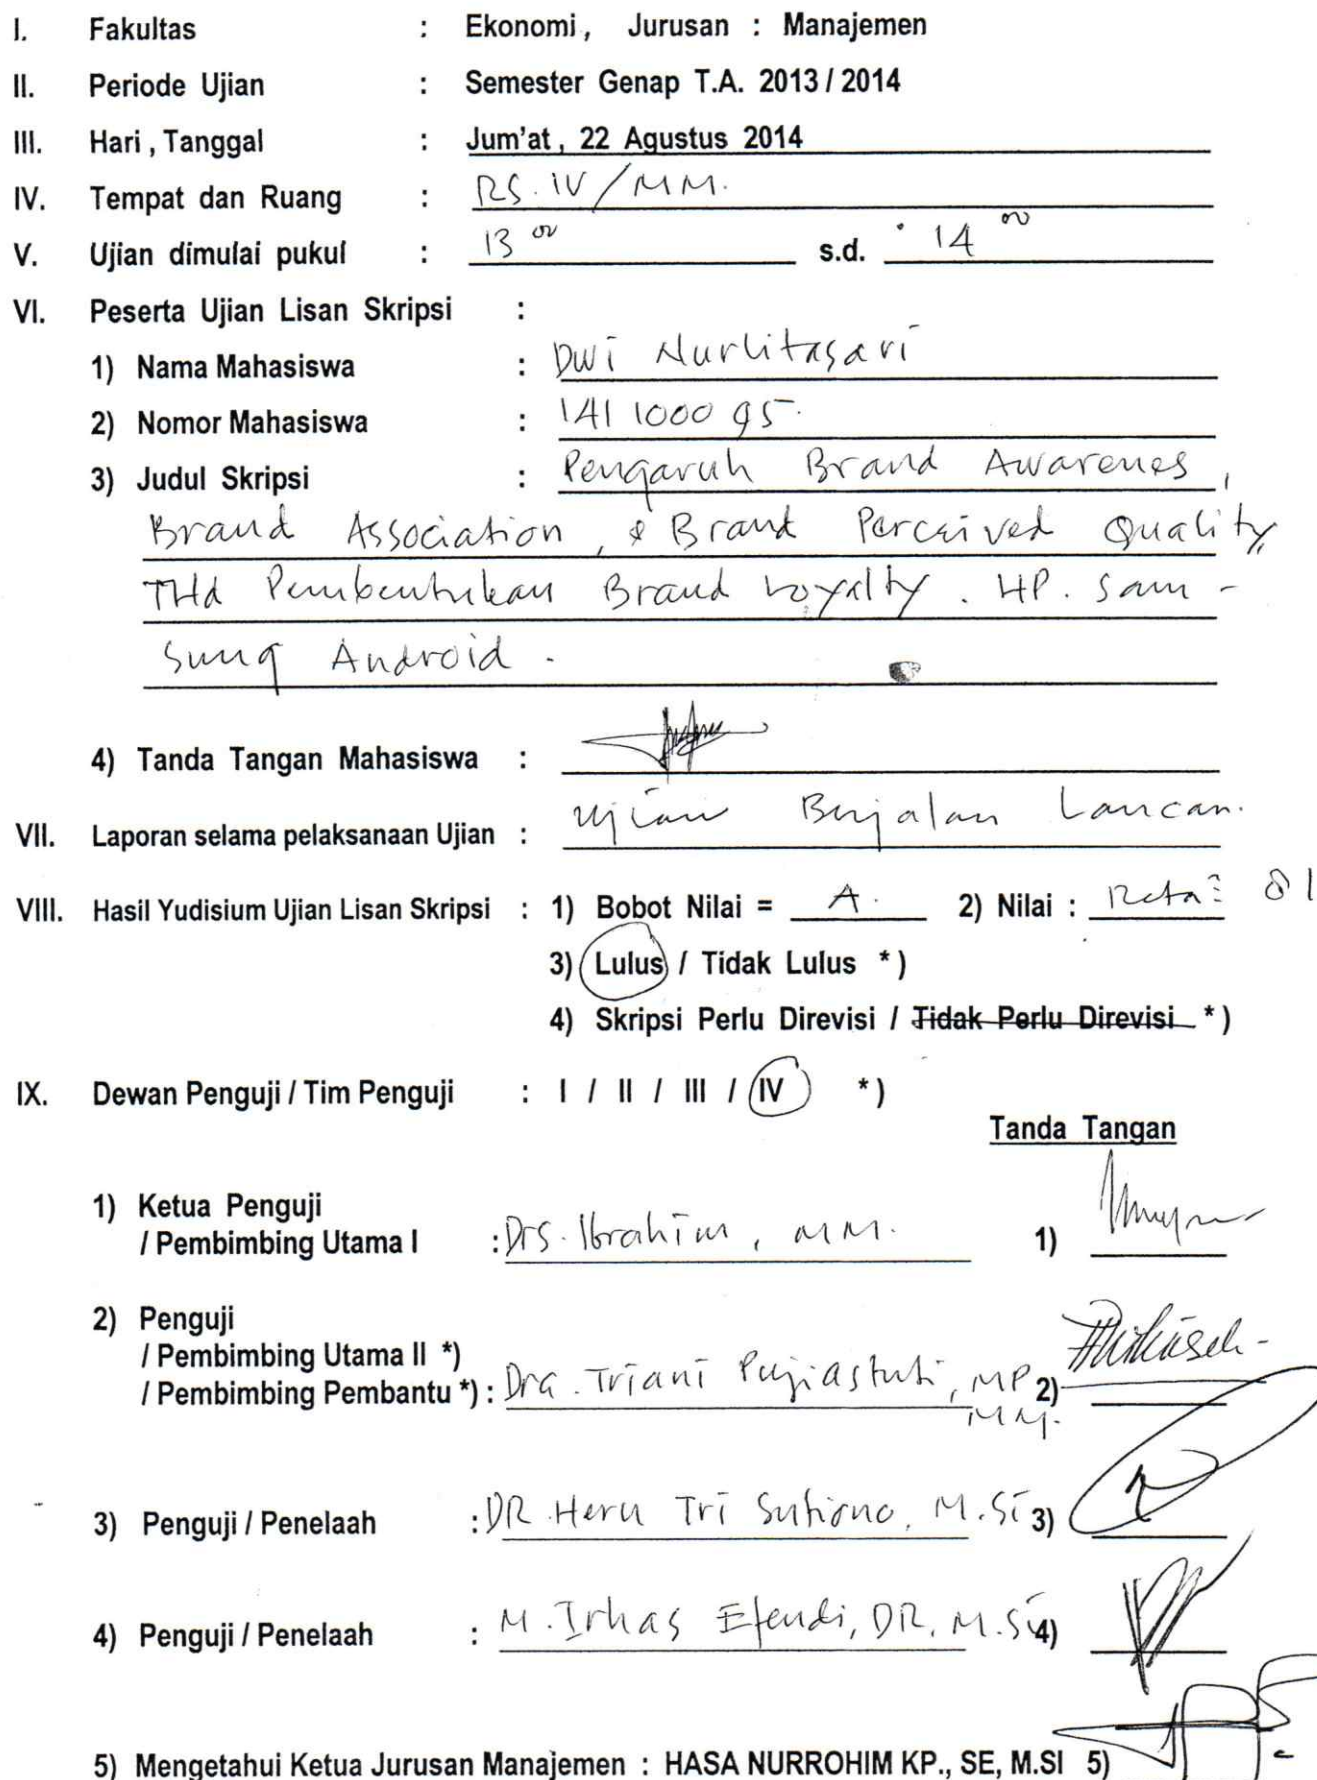 I. Fakultas : Ekonomi, Jurusan : Manajemen
II. Periode Ujian : Semester Genap T.A. 2013 / 2014
III. Hari , Tanggal : Jum'at , 22 Agustus 2014
IV. Tempat dan Ruang : RS. IV / MM.
V. Ujian dimulai pukul : 13 00 s.d. 14 00
VI. Peserta Ujian Lisan Skripsi :
1) Nama Mahasiswa : Dwi Nurlitasari
2) Nomor Mahasiswa : 141 1000 95.
3) Judul Skripsi : Pengaruh Brand Awarenes,
Brand Association, & Brand Perceived Quality,
THd Pembentukan Brand Loyalty. HP. Sam -
sung Android.
4) Tanda Tangan Mahasiswa :
VII. Laporan selama pelaksanaan Ujian : Ujian Berjalan Lancar.
VIII. Hasil Yudisium Ujian Lisan Skripsi : 1) Bobot Nilai = A. 2) Nilai : Rata2 81
3) Lulus / Tidak Lulus *)
4) Skripsi Perlu Direvisi / Tidak Perlu Direvisi *)
IX. Dewan Penguji / Tim Penguji : I / II / III / IV *)
Tanda Tangan
1) Ketua Penguji
/ Pembimbing Utama I : Drs. Ibrahim, MM. 1)
2) Penguji
/ Pembimbing Utama II *)
/ Pembimbing Pembantu *) : Dra. Triani Pujiastuti, MP 2)
MM.
3) Penguji / Penelaah : DR. Heru Tri Sutiono, M.Si 3)
4) Penguji / Penelaah : M. Irhas Efendi, DR, M.Si 4)
5) Mengetahui Ketua Jurusan Manajemen : HASA NURROHIM KP., SE, M.SI 5)